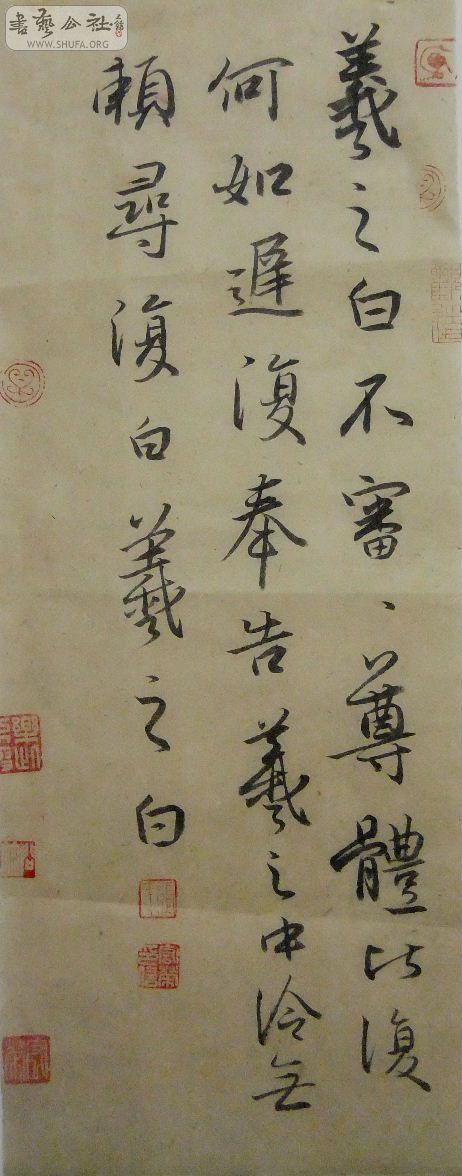 書藝公社
WWW.SHUFA.ORG
羲之白不審、尊體比復
何如遲復奉告羲之中冷無
賴尋復白羲之白